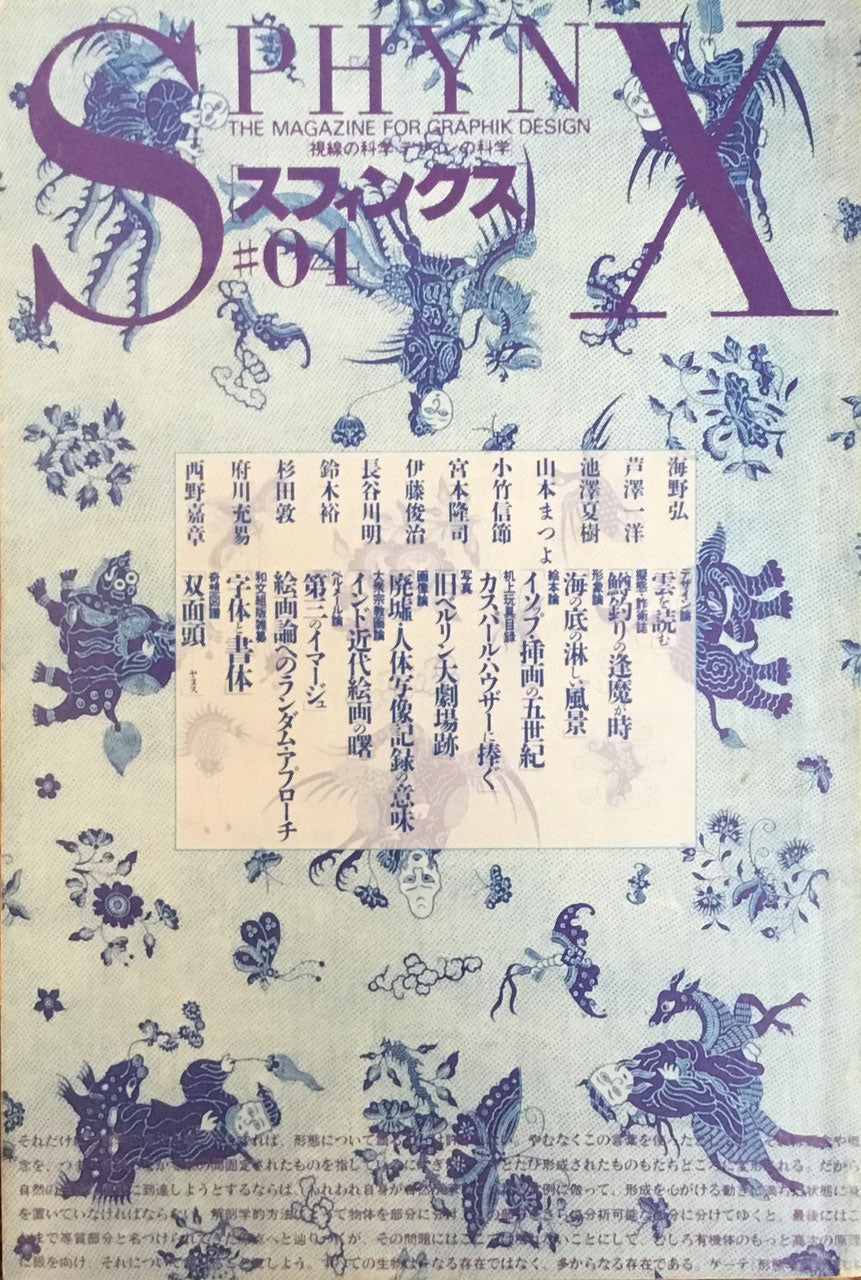 SPHYNX
THE MAGAZINE FOR GRAPHIK DESIGN
視線の科学 デザインの科学
[スフィンクス]
#04
海野弘
デザイン論
雲を読む
芦澤一洋
鱒釣りの逢魔が時
池澤夏樹
形象論
海の底の淋しい風景
山本まつよ
絵本論
イソップ・挿画の五世紀
小竹信節
机上玩具目録
カスパールハウザーに捧ぐ
宮本隆司
写真
旧ベルリン大劇場跡
伊藤俊治
画像論
廃墟・人体写像記録の意味
長谷川明
大衆宗教画論
インド近代絵画の曙
鈴木裕
第三のイマージュ
杉田敦
絵画論へのランダム・アプローチ
府川充男
和文組版雑纂
字体と書体
西野嘉章
双面頭
ヤヌス
それだけ
れば、形態について
やむなくこの言葉を使った
念を、つ
間固定されたものを指して
たび形成されたものもたちどころに変形される。だから
自然の
に到達しようとするならば、われわれ自身が
例に倣って、形成を心がける動きに満ちた状態に身
を置いていなければならない。解剖学的方法
て物体を部分に分け
分析可能な部分に分けてゆくと、最後にはこ
まで等質部分と名づけられてきた
へと辿り
が、その問題にはここ
いことにして、むしろ有機体のもっと高次の原理
に眼を向け、それについて
ての生物は一なる存在ではなく、多からなる存在である。ゲーテ「形態